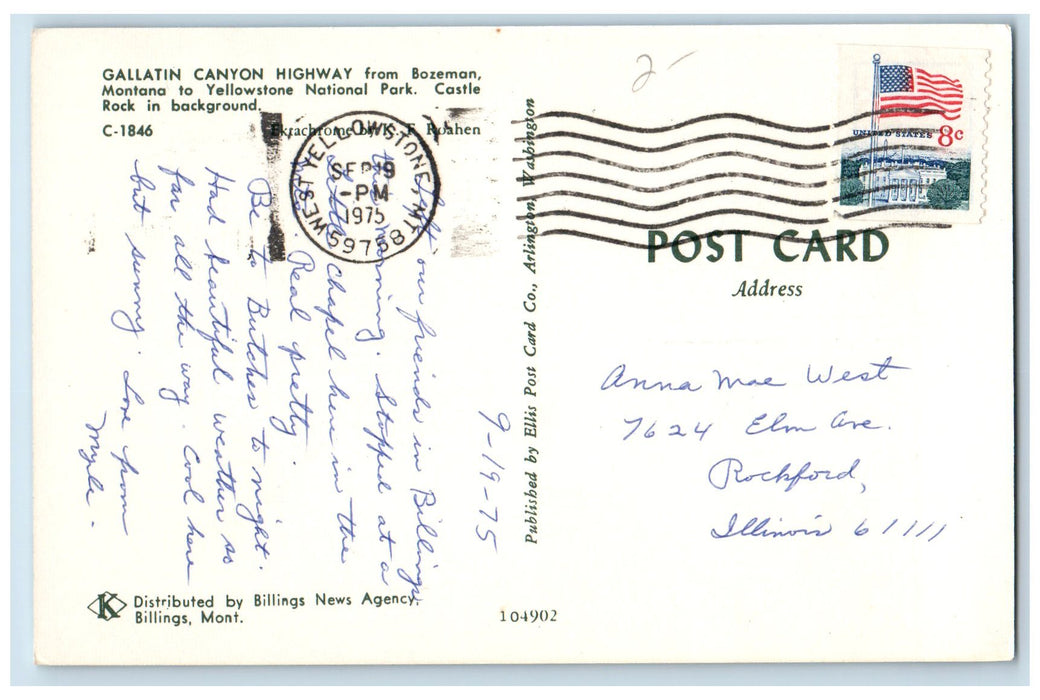 GALLATIN CANYON HIGHWAY from Bozeman,
Montana to Yellowstone National Park. Castle
Rock in background.
C-1846
Ektachrome by K. F. Roahen
WEST YELLOWSTONE, MT
SEP 19
-PM
1975
59758
9-19-75
Left our friends in Billings
this morning. Stopped at a
little chapel here in the
Real pretty.
Be to Butches to night.
Had beautiful weather so
far all the way. Cool here
but sunny. Love from
Myrle.
Distributed by Billings News Agency,
Billings, Mont.
K
104902
Published by Ellis Post Card Co., Arlington, Washington
2-
UNITED STATES 8c
POST CARD
Address
Anna Mae West
7624 Elm Ave.
Rockford,
Illinois 61111